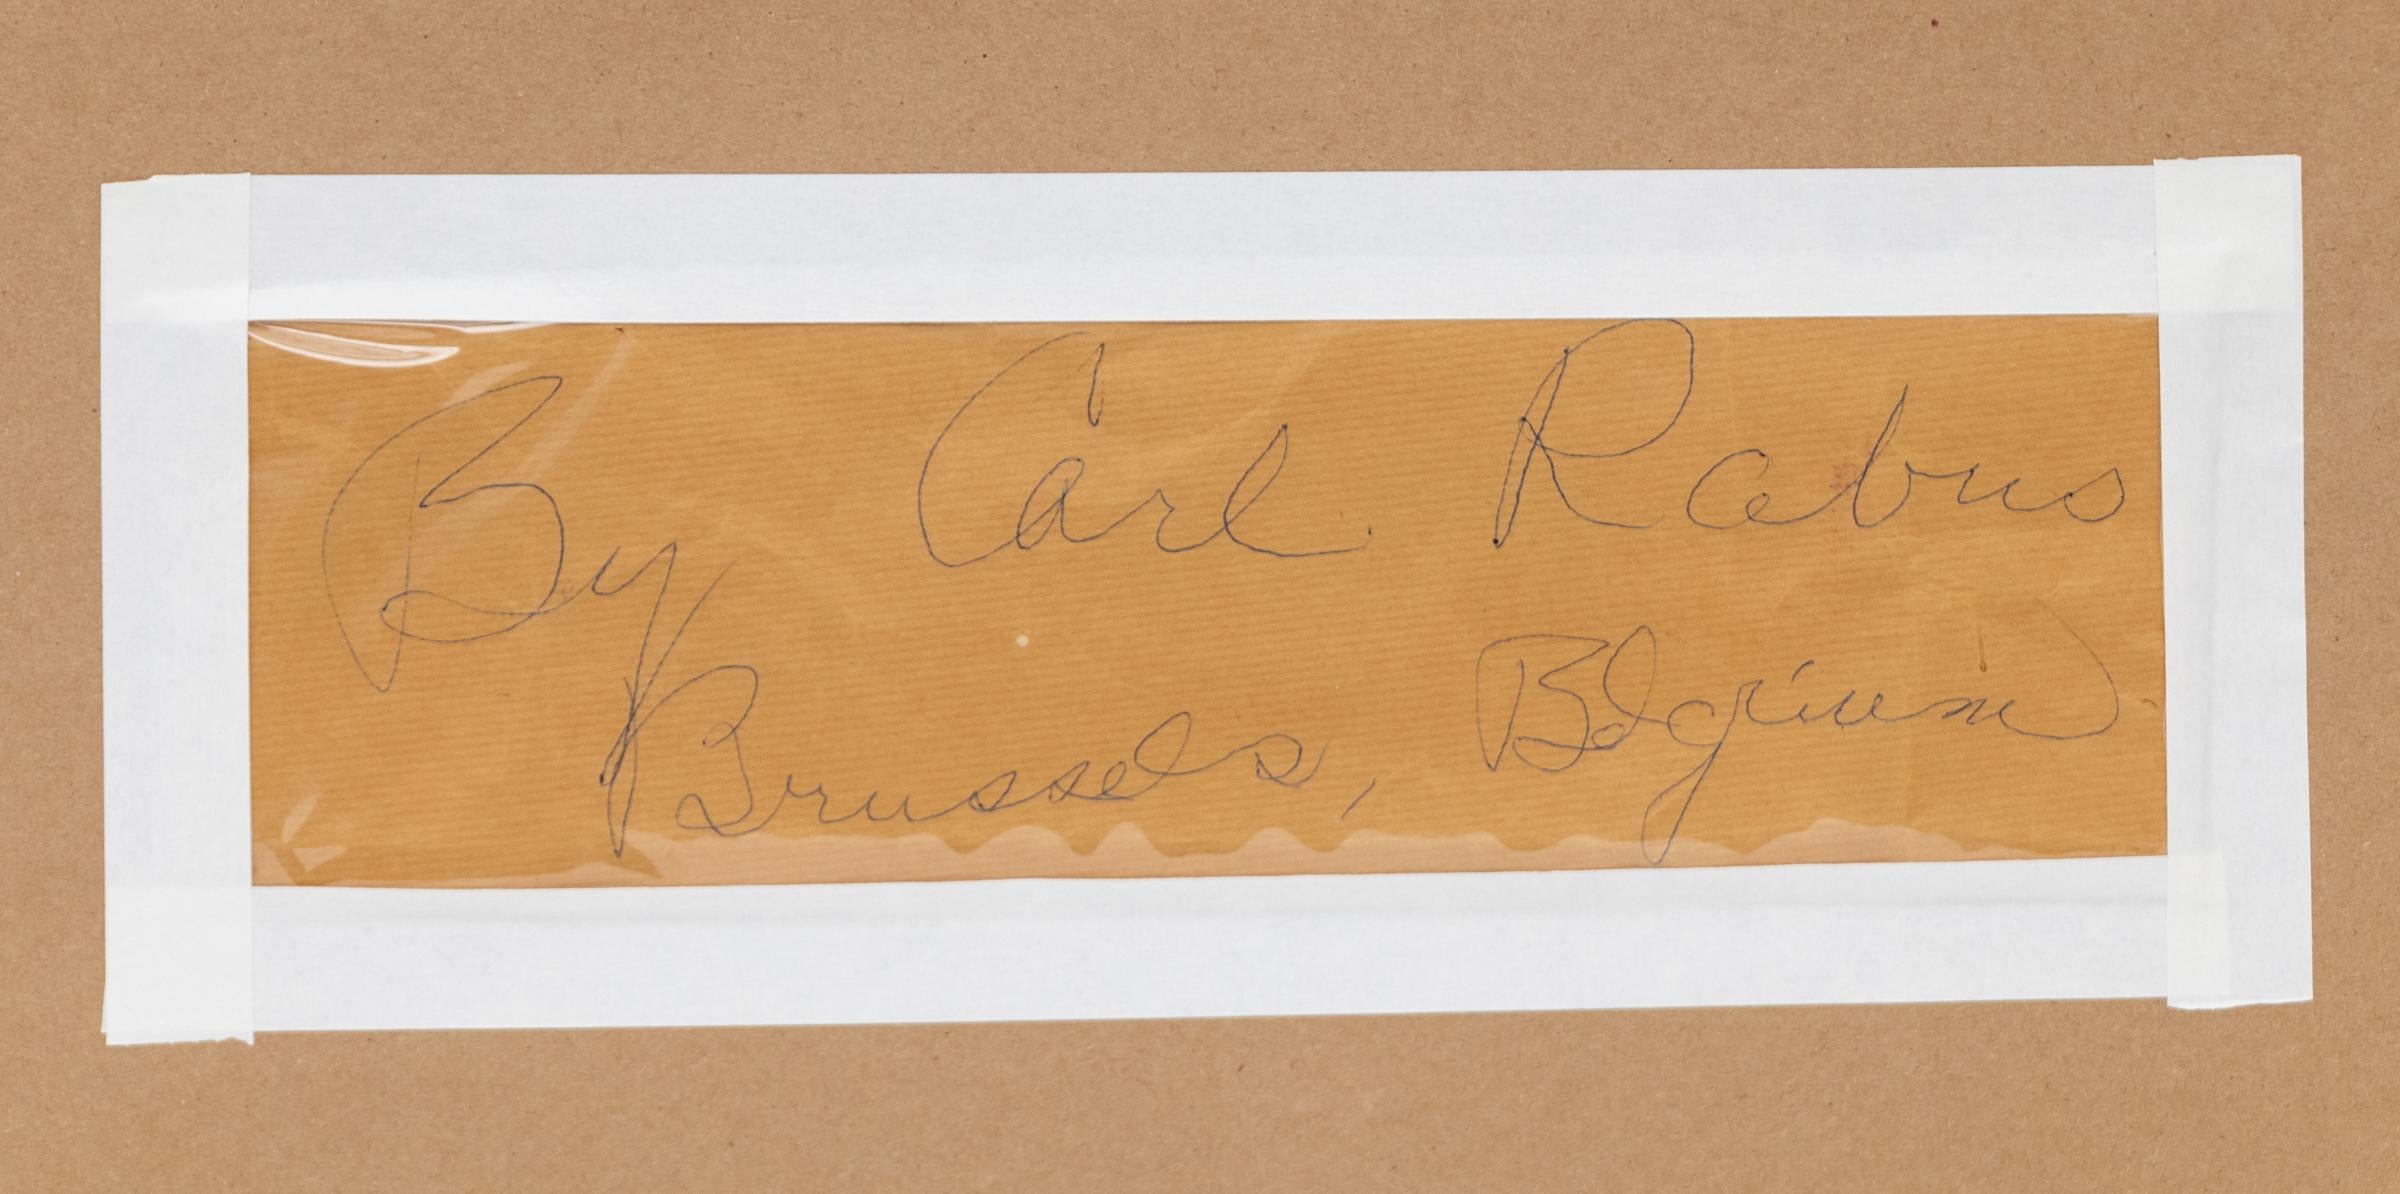 By Carl Rabus
Brussels, Belgium